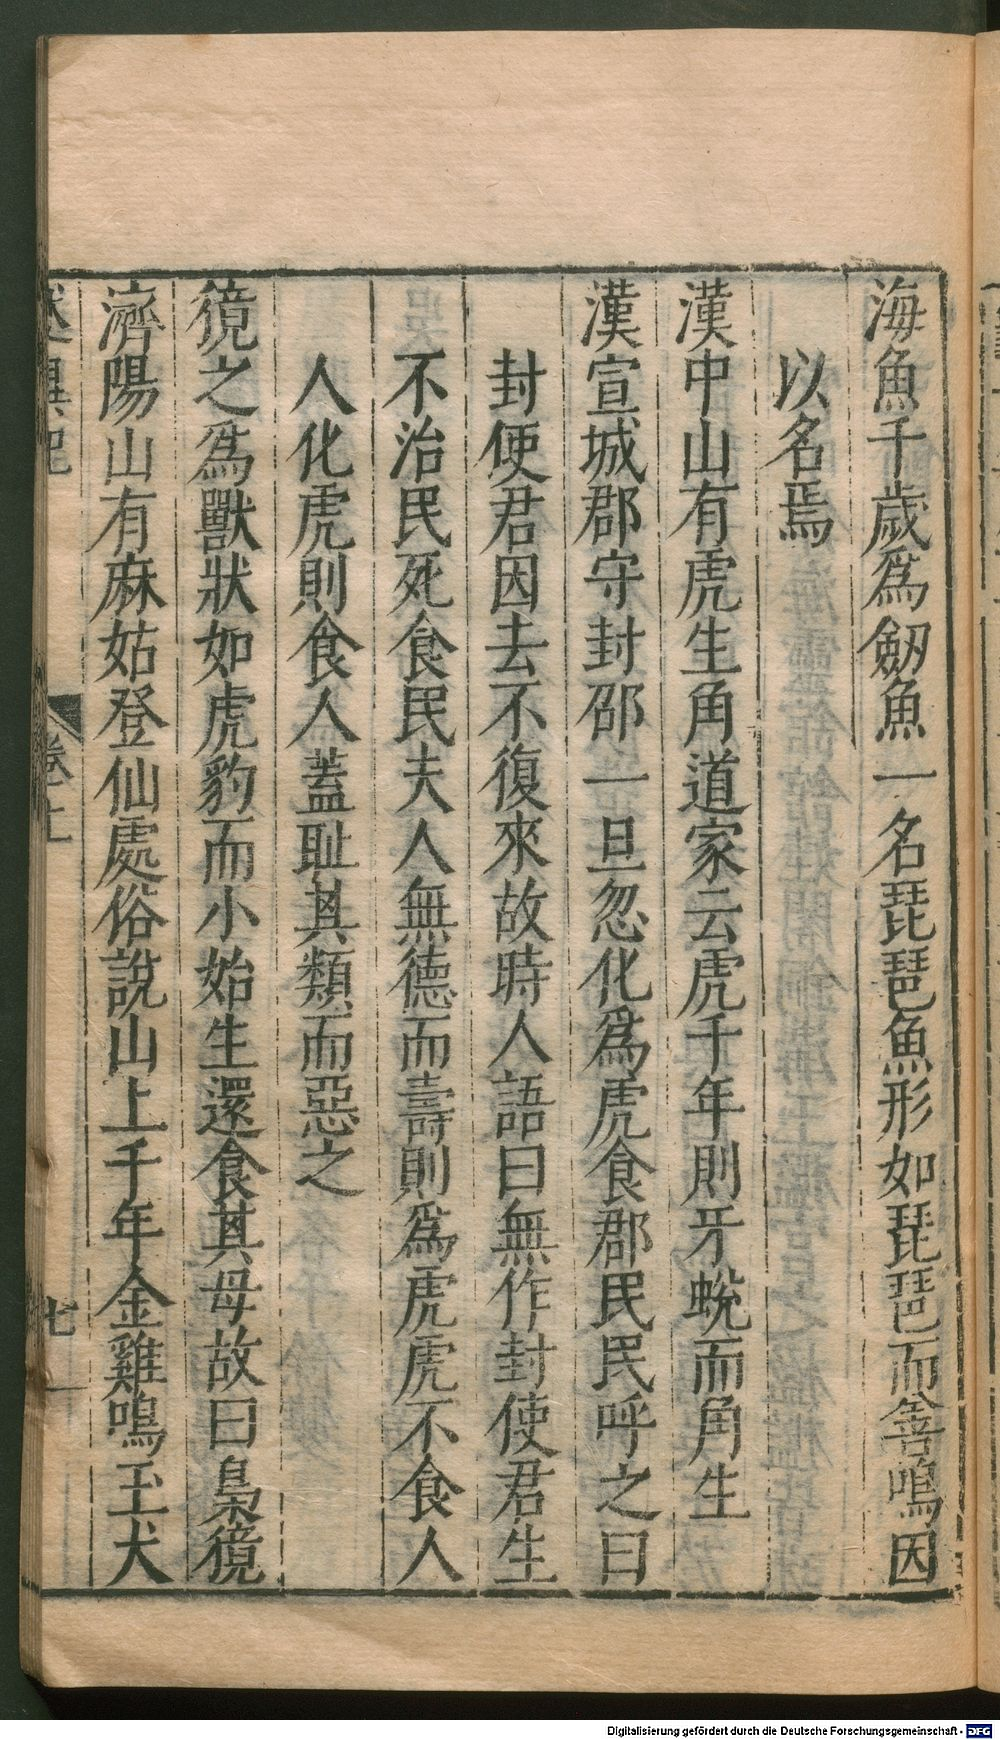 海魚千歲爲劒魚一名琵琶魚形如琵琶而善鳴因
以名焉
漢中山有虎生角道家云虎千年則牙蛻而角生
漢宣城郡守封邵一旦忽化爲虎食郡民民呼之曰
封使君因去不復來故時人語曰無作封使君生
不治民死食民夫人無德而壽則爲虎虎不食人
人化虎則食人蓋耻其類而惡之
獍之爲獸狀如虎豹而小始生還食其母故曰梟獍
濟陽山有麻姑登仙處俗說山上千年金雞鳴玉犬
述異記 卷上 七
Digitalisierung gefördert durch die Deutsche Forschungsgemeinschaft - DFG